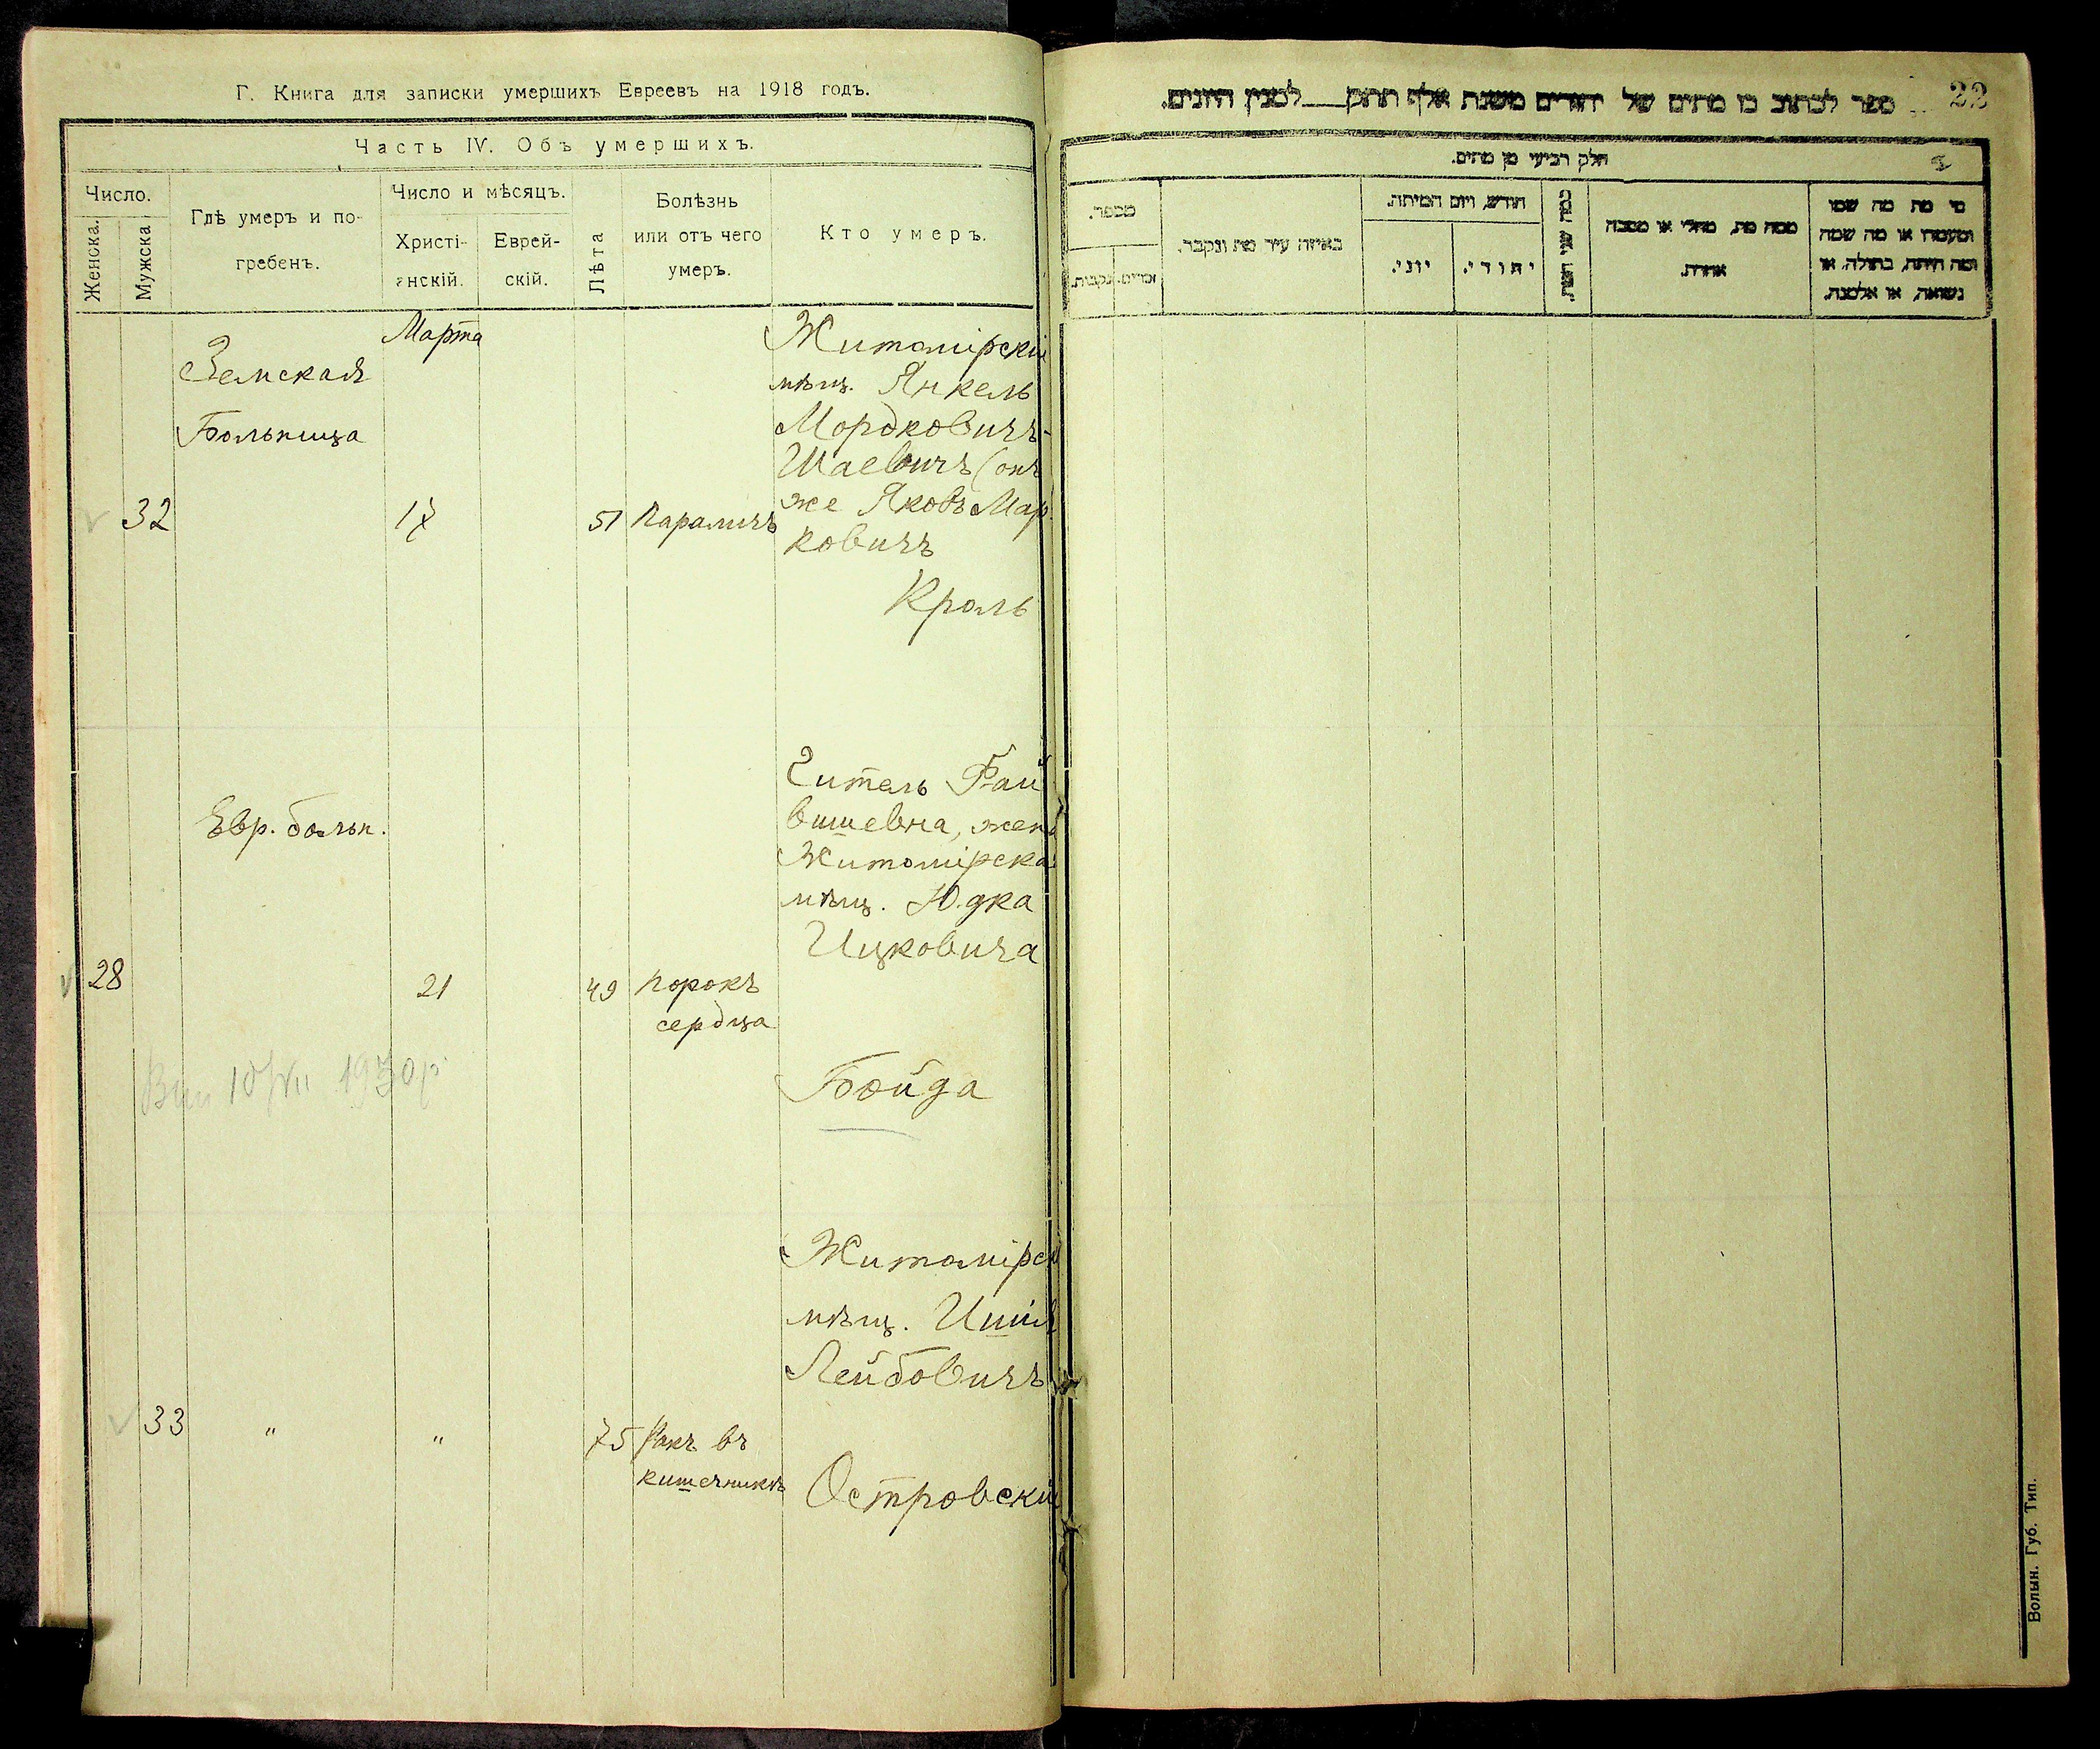 Г. Книга для записки умершихъ Евреевъ на 1918 годъ.
Часть IV. Объ умершихъ.
Число.
Женска.
Мужска
Гдѣ умеръ и по-
гребенъ.
Число и мѣсяцъ.
Христі-
анскій.
Еврей-
скій.
Лѣта
Болѣзнь
или отъ чего
умеръ.
Кто умеръ.
Марта
Земская
Больница
32
17
51
параличъ
Житомірскій
мѣщ. Янкель
Мордковичъ-
Шаевичъ (онъ
же Яковъ Мар
ковичъ
Кроль
Евр. больн.
28
21
49
порокъ
сердца
Гитель Фай
вишевна, жена
Житомірска
мѣщ. Юдка
Ицковича
Бойда
1930р
33
"
"
75
Ракъ въ
кишечникѣ
Житомірск
мѣщ.
Лейбовичъ
Островскій
22
ספר לכתוב בו מתים של יהודים משנת אלף תתק___למנין היונים.
חלק רביעי מן מתים.
מספר.
זכרים.
נקבות.
באיזה עיר מת ונקבר.
חודש, ויום המיתה.
יוני.
יהודי.
כמה שני חיות.
ממה מת, מחלי או מסבה
אחרת.
מי מת מה שמו
ומעמדו או מה שמה
ומה היתה, בתולה, או
נשואה, או אלמנה.
Волын. Губ. Тип.